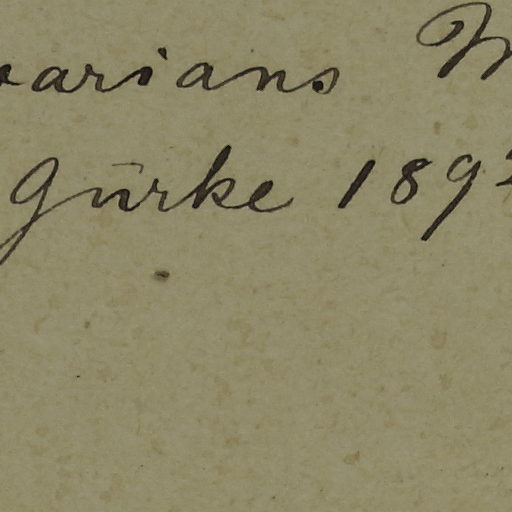 varians M
Gürke 189